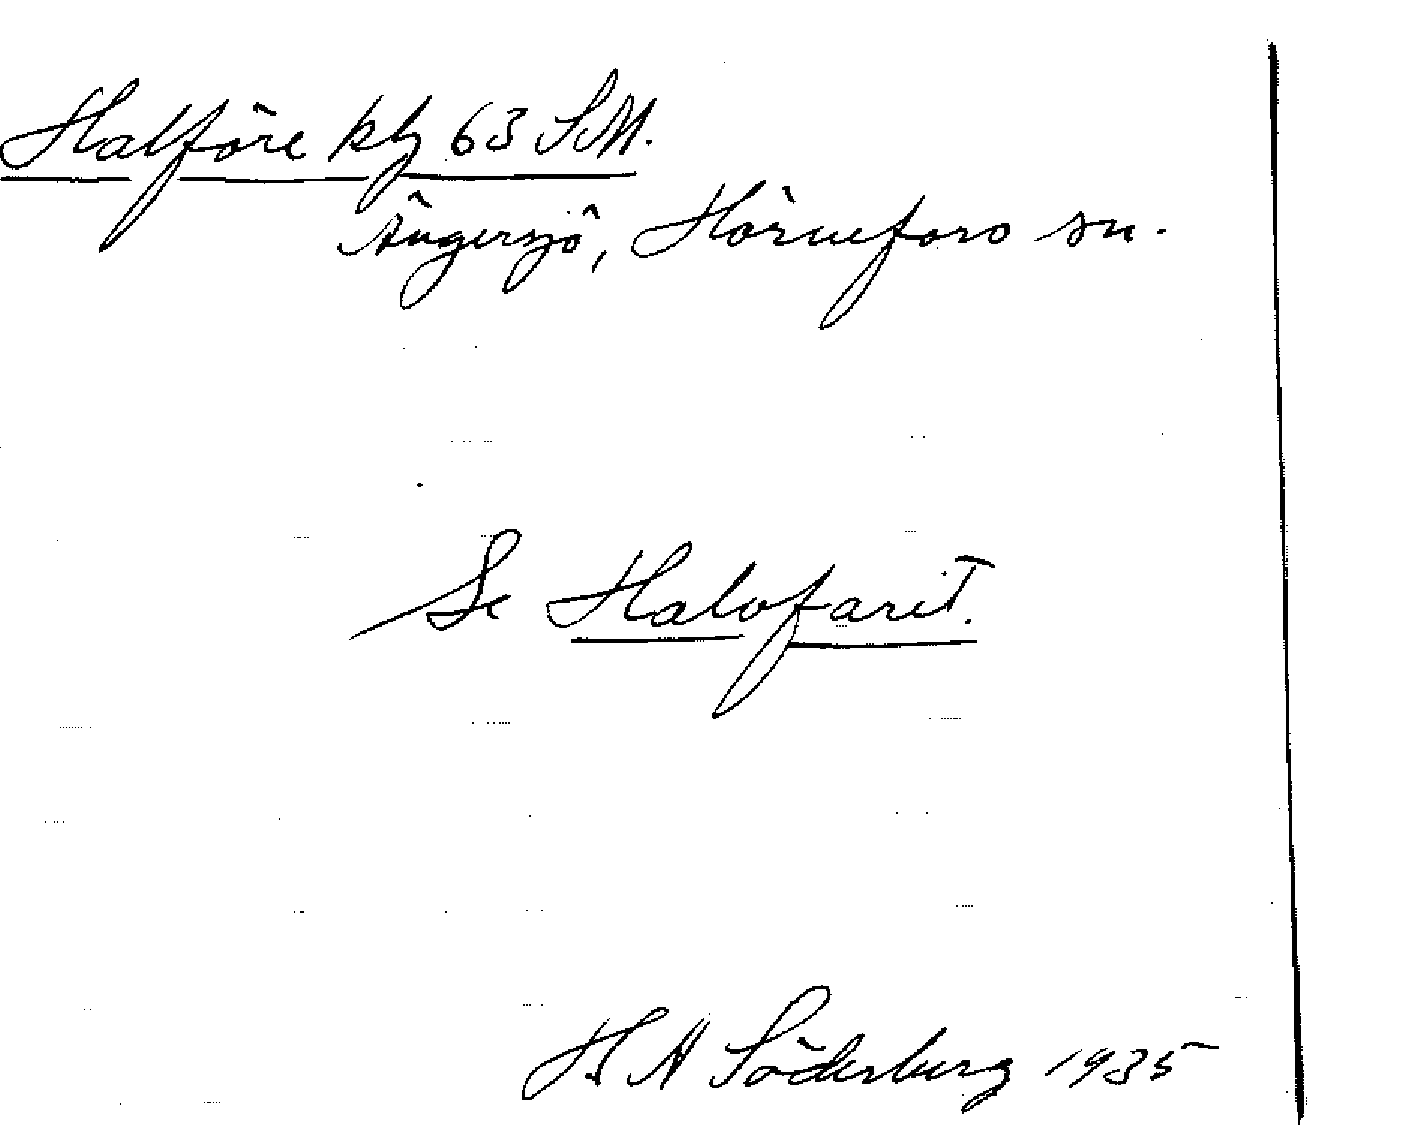 Halföre klg 63 S.M.
Ängersjö, Hörnefors sn.
Se Halvfarit.
H. A Söderberg 1935